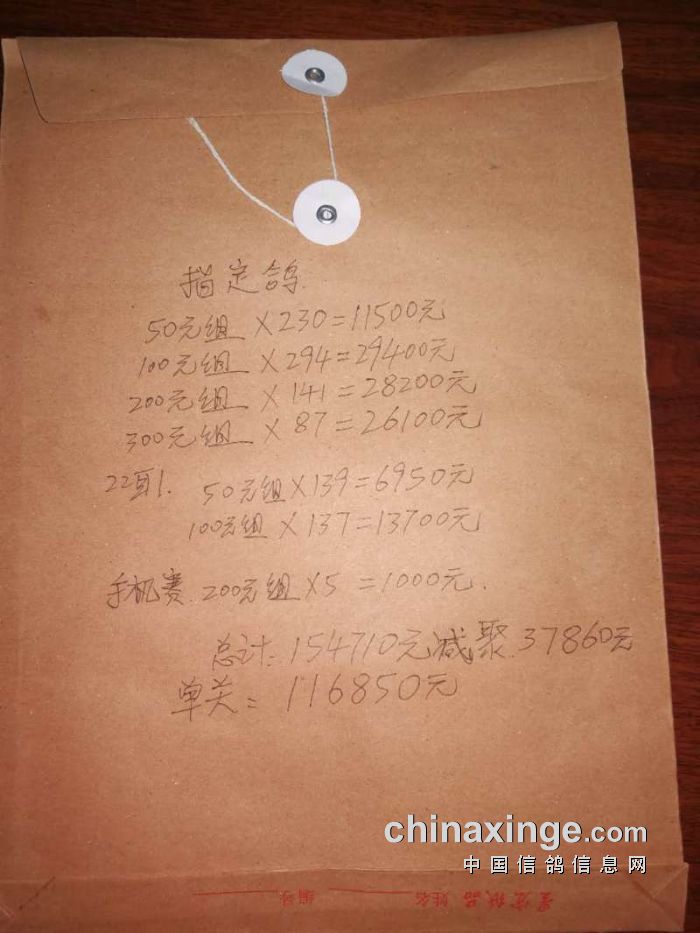 指定鸽
50元组×230=11500元
100元组×294=29400元
200元组×141=28200元
300元组×87=26100元
22取1. 50元组×139=6950元
100元组×137=13700元
手机赛 200元组×5=1000元.
总计: 154710元减聚 37860元
单关= 116850元
chinaxinge.com
中国信鸽信息网
姓名 编号